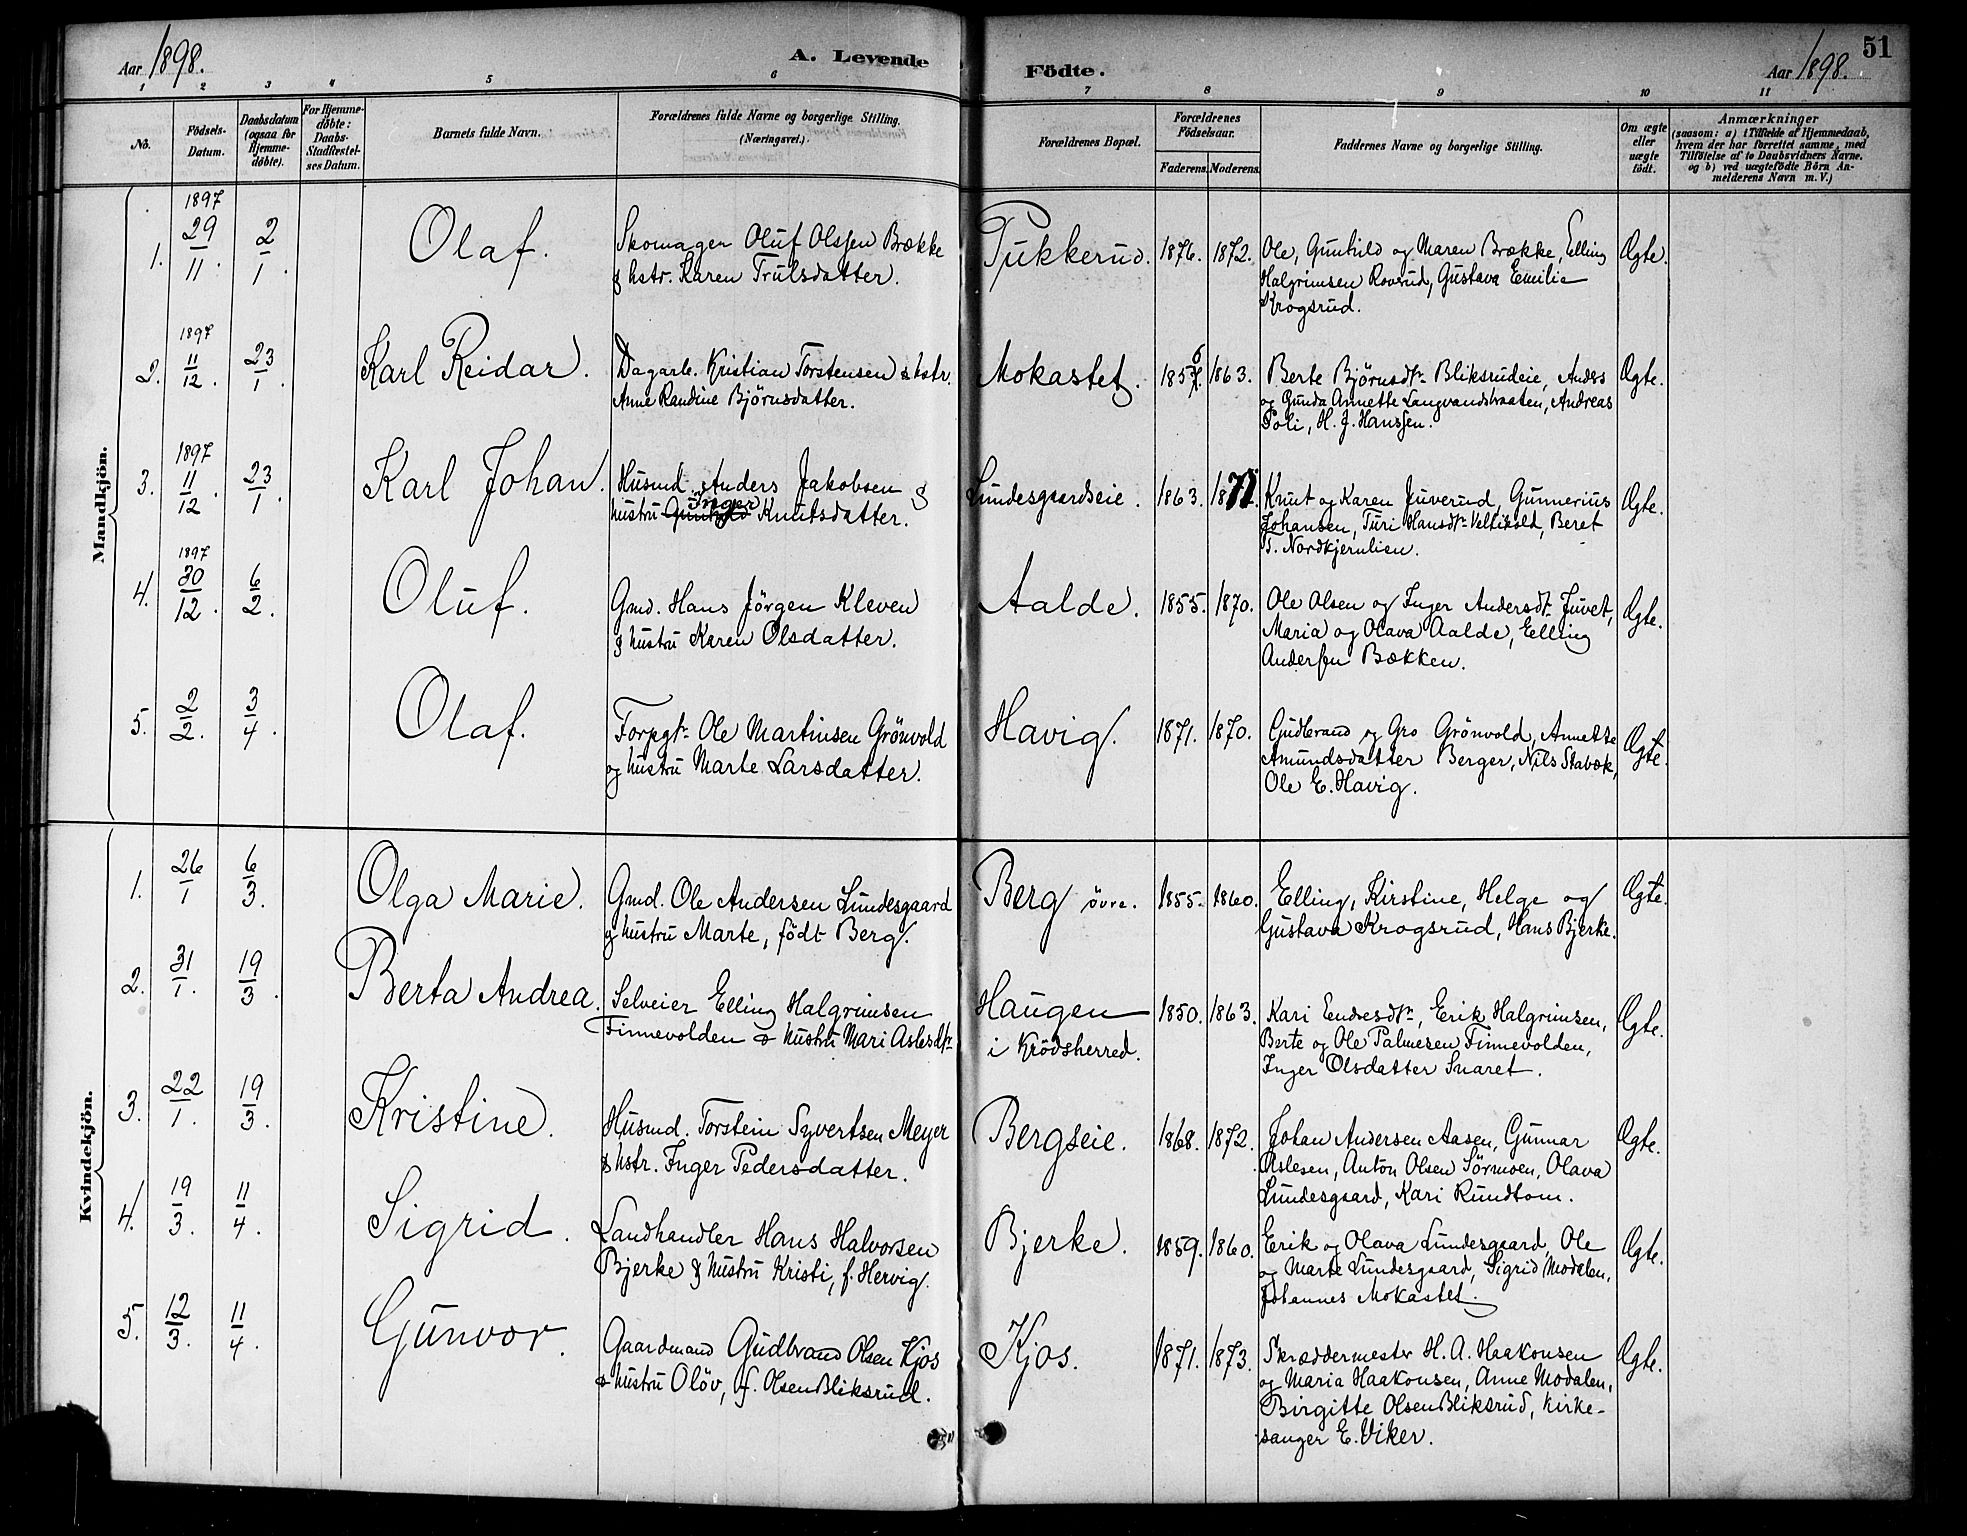 Aar 1898.
A. Levende
Födte.
Aar 1898.
51
1 2 3 4 5 6 7 8 9 10 11
No.
Födsels-Datum.
Daabsdatum (ogsaa for Hjemme-döbte).
For Hjemme-döbte: Daabs-Stadfæstel-ses Datum.
Barnets fulde Navn.
Forældrenes fulde Navne og borgerlige Stilling.
(Næringsvei.)
Forældrenes Bopæl.
Forældrenes Födselsaar.
Faderens. Moderens.
Faddernes Navne og borgerlige Stilling.
Om ægte eller uægte födt.
Anmærkninger
(saasom: a) i Tilfælde af Hjemmedaab,
hvem der har forrettet samme, med
Tilföielse af to Daabsvidners Navne.
og b) ved uægtefödte Börn An-
melderens Navn m. V.)
Mandkjön.
1. 1897 29/11. 2/1. Olaf. Skomager Oluf Olssen Brække
& hstr. Karen Trulsdatter.
Tukkerud. 1876. 1872. Ole, Gunhild og Maren Brække, Elling
Halgrimsen Roverud, Gustava Emilie
Krogsrud. Ægte.
2. 1897 11/12. 23/1. Karl Reidar. Dagarb. Kristian Torstensen & hstr.
Anne Randine Björnsdatter.
Mokastet. 1856. 1863. Berte Björnsdtr Bliksrudeie, Anders
og Gunda Annette Langvandsbraaten, Andreas
Soli, H. J. Hanssen. Ægte.
3. 1897 11/12. 23/1. Karl Johan. Husmd. Anders Jakobsen &
hustru Gunhild Inger Knutsdatter.
Lundesgaardseie. 1863. 1871. Knut og Karen Juverud, Gunnerius
Johansen, Turi Hansdtr Veltikold, Beret
T. Nordkjernlien. Ægte.
4. 1897 30/12. 6/2. Oluf. Gmd. Hans Jörgen Kleven
& hustru Karen Olsdatter.
Aalde. 1855. 1870. Ole Olsen og Inger Andersdtr Juvet,
Maria og Olava Aalde, Elling
Anderssen Bækken. Ægte.
5. 2/2. 3/4. Olaf. Forpgtr Ole Martinsen Grönvold
og hustru Marte Larsdatter.
Havig. 1871. 1870. Gudbrand og Gro Grönvold, Annette
Amundsdatter Berger, Nils Stavæk,
Ole E. Havig. Ægte.
Kvindekjön.
1. 26/1 6/3. Olga Marie. Gmd. Ole Andersen Lundesgaard
& hustru Marte, født Berg.
Berg övre. 1855. 1860. Elling, Kirstine, Helge og
Gustava Krogsrud, Hans Bjerke. Ægte.
2. 31/1. 19/3. Berta Andrea. Selveier Elling Halgrimsen
Finnevolden & hustru Mari Aslesdtr
Haugen
i Krödsherred. 1850. 1863. Kari Endresdtr, Erik Halgrimsen,
Berte og Ole Palmesen Finnevolden,
Inger Olsdatter Snaret. Ægte.
3. 22/1. 19/3. Kristine. Husmd. Torstein Syvertsen Meyer
& hstr. Inger Pedersdatter.
Bergseie. 1868. 1872. Johan Andersen Aasen, Gunnar
Aslesen, Anton Olsen Sörmoen, Olava
Lundesgaard, Kari Rundtom. Ægte.
4. 19/3. 11/4. Sigrid. Landhandler Hans Halvorsen
Bjerke & hustru Kristi, f. Hervig.
Bjerke. 1859. 1860. Erik og Olava Lundesgaard, Ole
og Marte Lundesgaard, Sigrid Modalen,
Johannes Mokastet. Ægte.
5. 12/3. 11/4. Gunvor. Gaardmand Gudbrand Olsen Kjos
& hustru Olöv, f. Olsen Bliksrud.
Kjos. 1871. 1873. Skræddermester H. A. Haakonsen
og Maria Haakonsen, Anne Modalen,
Birgitte Olsen Bliksrud, Kirke-
sanger E. Viker. Ægte.